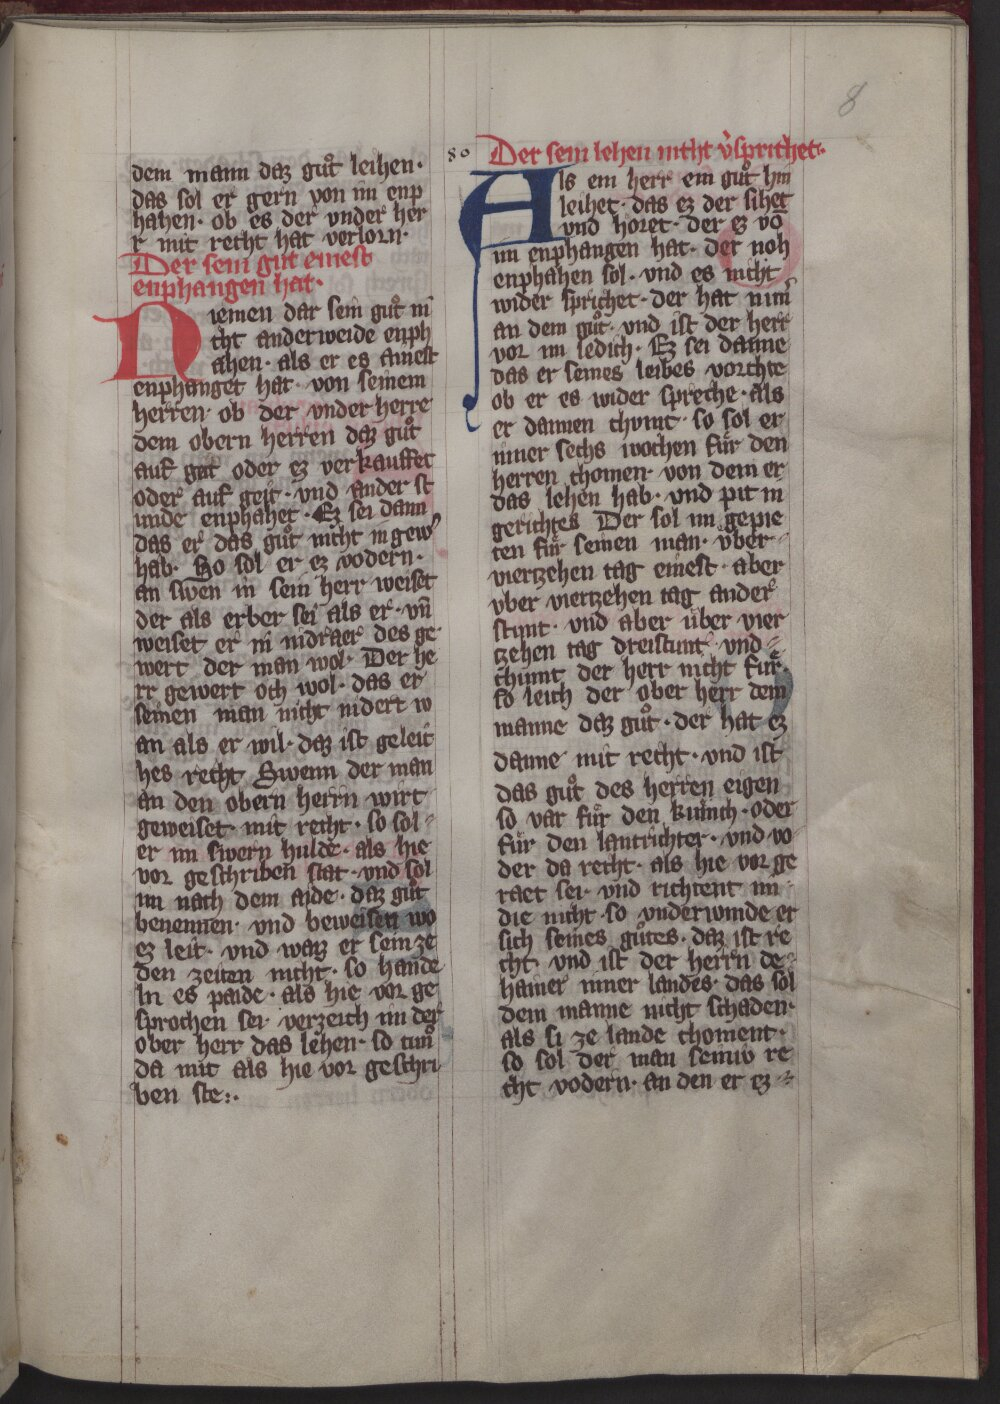 8
dem mann daz guͦt leihen·
das sol er gern von im enp
hahen· ob es der vnder her
r mit recht hat verlorn·
Der sein gut einest
enphangen hat·
Niemen dar sein guͦt ni
cht anderweide enph
ahen· als er es ainest
enphanget hat· von seinem
herren· ob der vnder herre
dem obern herren daz guͦt
auf gat oder ez verkauffet
oder auf geit· vnd ander st
unde enphahet· Ez sei dann
das er das guͦt nicht in gew
hab· So sol er ez vodern·
an swen in sein herr weiset
der als erber sei als er· vn̄
weiset er in nidraer des ge
wert der man wol· Der he
rr gewert och wol· das er
seinen man nicht nidert w
an als er wil· daz ist geleit
hes recht Swenn der man
an den obern herrn wirt
geweiset· mit recht· so sol
er im swern hulde· als hie
vor geschriben stat· vnd sol
im nach dem aide· daz guͦt
benennen· vnd beweisen wo
ez leit· vnd waz er sein ze
den zeiten nicht· so hande
ln es paide· als hie vor ge
sprochen sei· verzeich im der
ober herr das lehen· so tuͦ
da mit als hie vor geschri
ben ste:·
80 Der sein lehen nicht v̾sprichet·
Als ein herr ein guͦt hin
leihet· das ez der sihet
vnd horet· der ez vō
im enphangen hat· der noh
enphahen sol· vnd es nicht
wider sprichet· der hat nim̄
an dem guͦt· vnd ist der herr
vor im ledich· Ez sei danne
das er seines leibes vorchte
ob er es wider spreche· als
er dannen chvmt· so sol er
inner sechs wochen fuͤr den
herren chomen· von dem er
das lehen hab· vnd pit in
gerichtes Der sol im gepie
ten fuͤr seinen man· vber
viertzehen tag einest· aber
vber viertzehen tag ander
stvnt· vnd aber über vier
tzehen tag dreistunt· vnd
chumt der herr nicht fuͤr·
so leich der ober herr dem
manne daz guͦt· der hat ez
danne mit recht· vnd ist
das guͦt des herren eigen
so var fuͤr den kunich· oder
fuͤr den lantrichter· vnd vo
der da recht· als hie vor ge
raet sei· vnd richtent im
die nicht· so vnderwinde er
sich seines guͦtes· daz ist re
cht· vnd ist der herrn de
hainer inner landes· das sol
dem manne nicht schaden·
als si ze lande choment·
so sol der man seiniv re
cht vodern· an den er ez